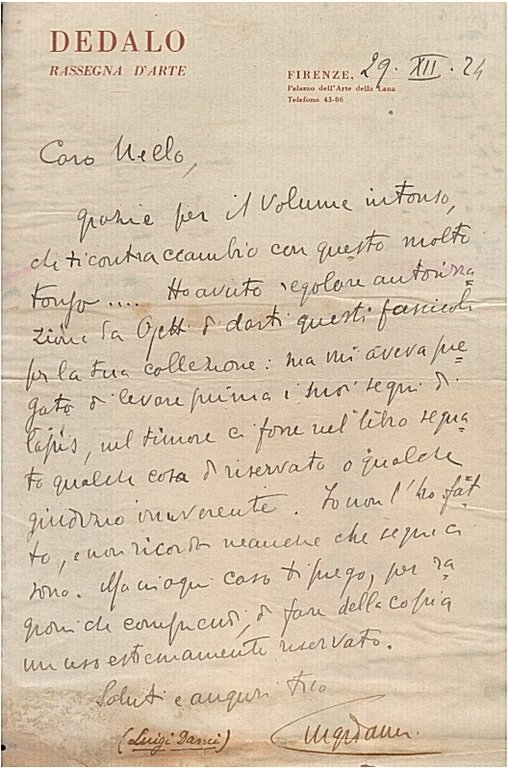 DEDALO
RASSEGNA D'ARTE
FIRENZE, 29. XII. 24
Palazzo dell'Arte della Lana
Telefono 43-06
Caro Nello,
grazie per il volume intonso,
che ti contraccambio con questo molto
tonso .... Ho avuto regolare autorizza
zione da Ojetti di darti questi fascicoli
per la tua collezione: ma mi aveva pre
gato di levare prima i suoi segni di
lapis, nel timore ci fosse nel libro segna
to qualche cosa di riservato o qualche
giudizio irriverente. Io non l'ho fat
to, e non ricordo neanche che segni ci
sono. Ma in ogni caso ti prego, per ra
gioni che comprendi, di fare della copia
un uso estremamente riservato.
Saluti e auguri tuo
(Luigi Dami)